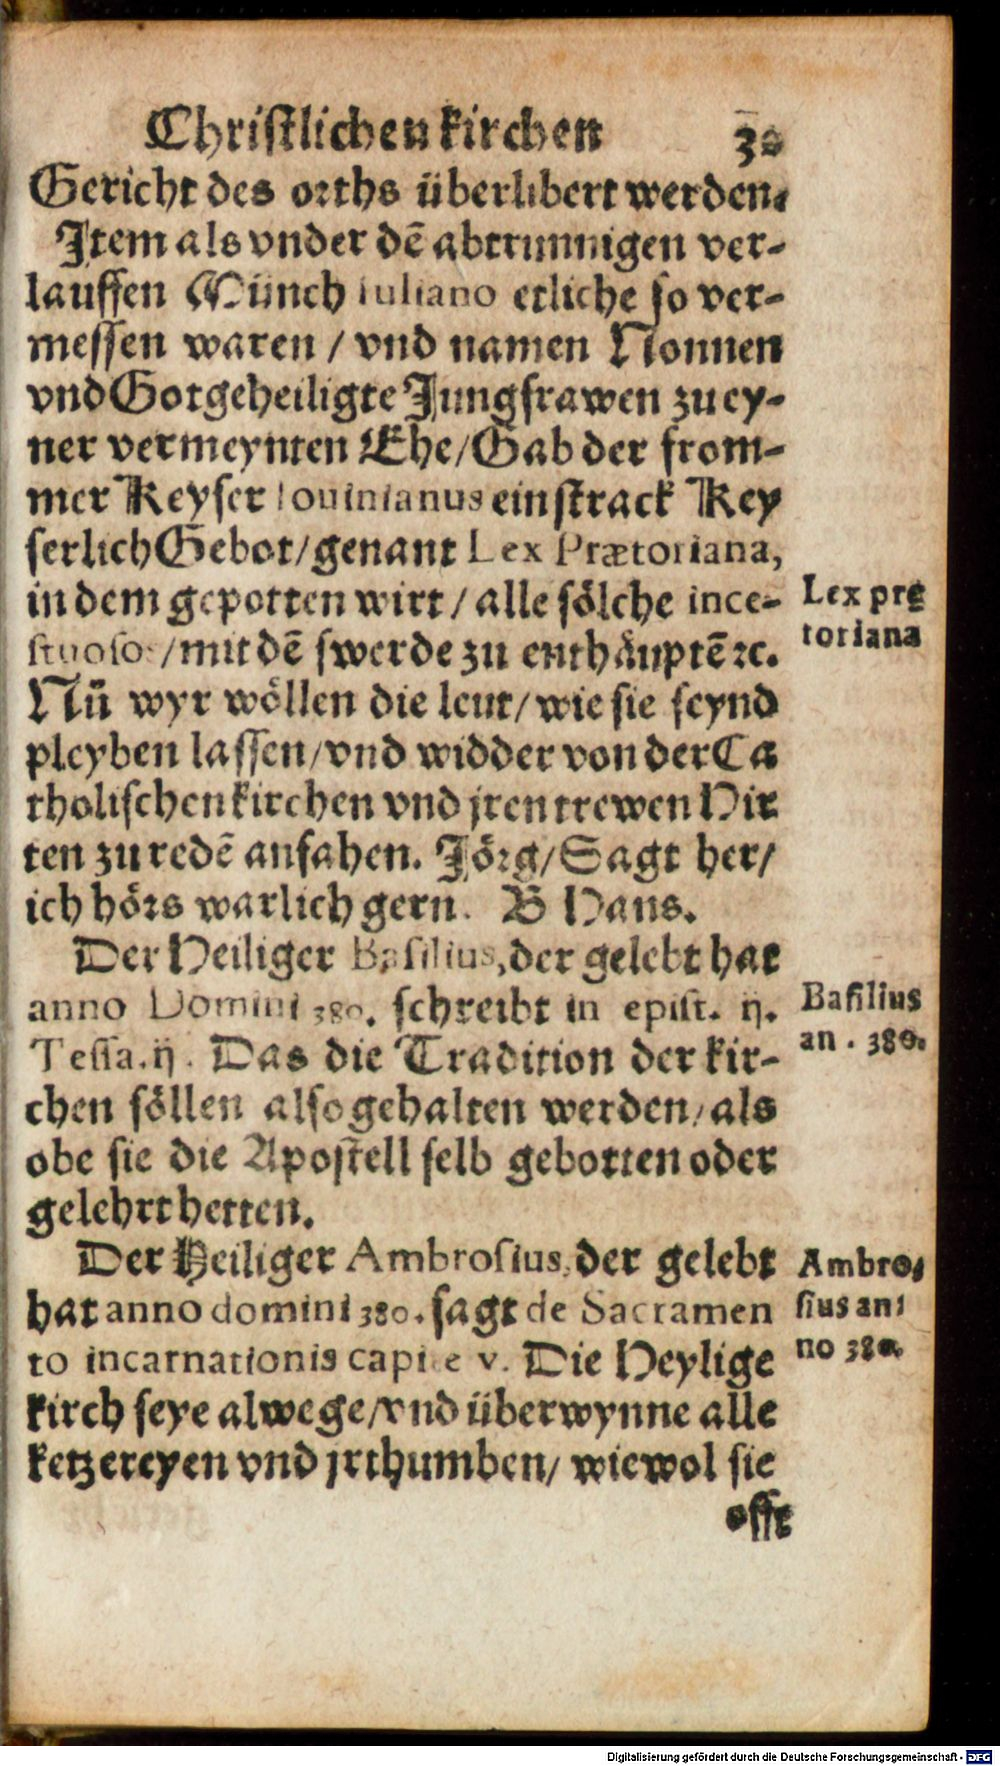 Christlichen kirchen 30
Gericht des orths überlibert werden.
Item als vnder dē abtrunnigen ver-
lauffen Münch Iuliano etliche so ver-
messen waren / vnd namen Nonnen
vnd Gotgeheiligte Jungfrawen zu ey-
ner vermeynten Ehe / Gab der from-
mer Keyser Iouinianus ein strack Key
serlich Gebot / genant Lex Prætoriana,
in dem gepotten wirt / alle sölche ince-
stuosos / mit dē swerde zu enthäuptē ꝛc.
Nū wyr wöllen die leut / wie sie seynd
pleyben lassen / vnd widder von der Ca
tholischen kirchen vnd jren trewen Hir
ten zu redē anfahen. Jörg / Sagt her /
ich hörs warlich gern. B Hans.
Der Heiliger Basilius, der gelebt hat
anno Domini 380. schreibt in epist. ij.
Tessa. ij. Das die Tradition der kir-
chen söllen also gehalten werden / als
obe sie die Apostell selb gebotten oder
gelehrt hetten.
Der Heiliger Ambrosius, der gelebt
hat anno domini 380. sagt de Sacramen
to incarnationis capite v. Die Heylige
kirch seye alwege / vnd überwynne alle
ketzereyen vnd jrthumben / wiewol sie
offt
Lex prę
toriana
Basilius
an. 380.
Ambro-
sius an-
no 380.
Digitalisierung gefördert durch die Deutsche Forschungsgemeinschaft - DFG